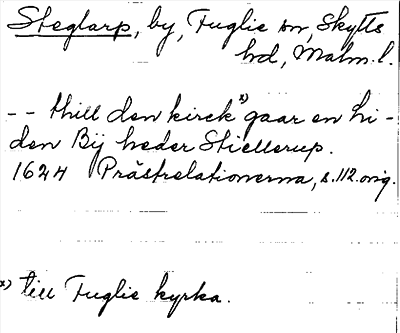 Steglarp, by, Fuglie sn, Skytts
hd, Malm. l.
-- thill den kirck x) gaar en li-
den Bÿ heder Stiellerup.
1624 Prästrelationerna, s. 112. orig.
x) till Fuglie kyrka.